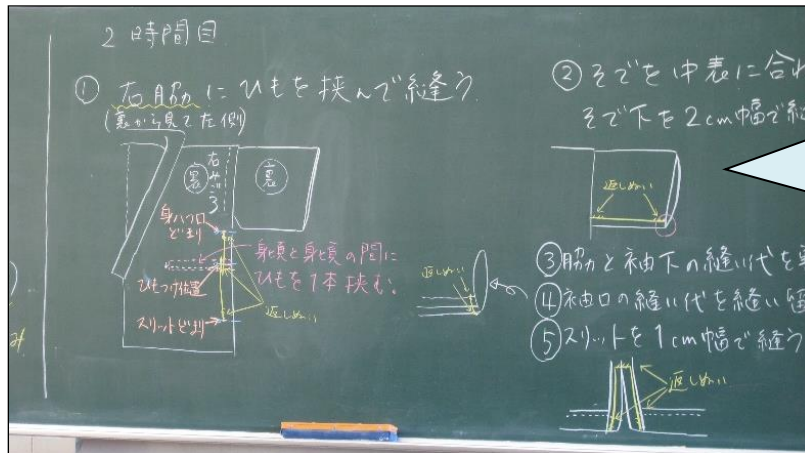 2時間目
① 右脇にひもを挟んで縫う
(裏から見て左側)
裏
右みごろ
裏
身八つ口
どまり
身頃と身頃の間に
ひもを1本挟む。
ひもつけ位置
スリットどまり
返しぬい
② そでを中表に合わ
そで下を2cm幅で縫
返しぬい
③脇と袖下の縫い代を
返しぬい
④袖口の縫い代を縫い
⑤スリットを1cm幅で縫う
返しぬい